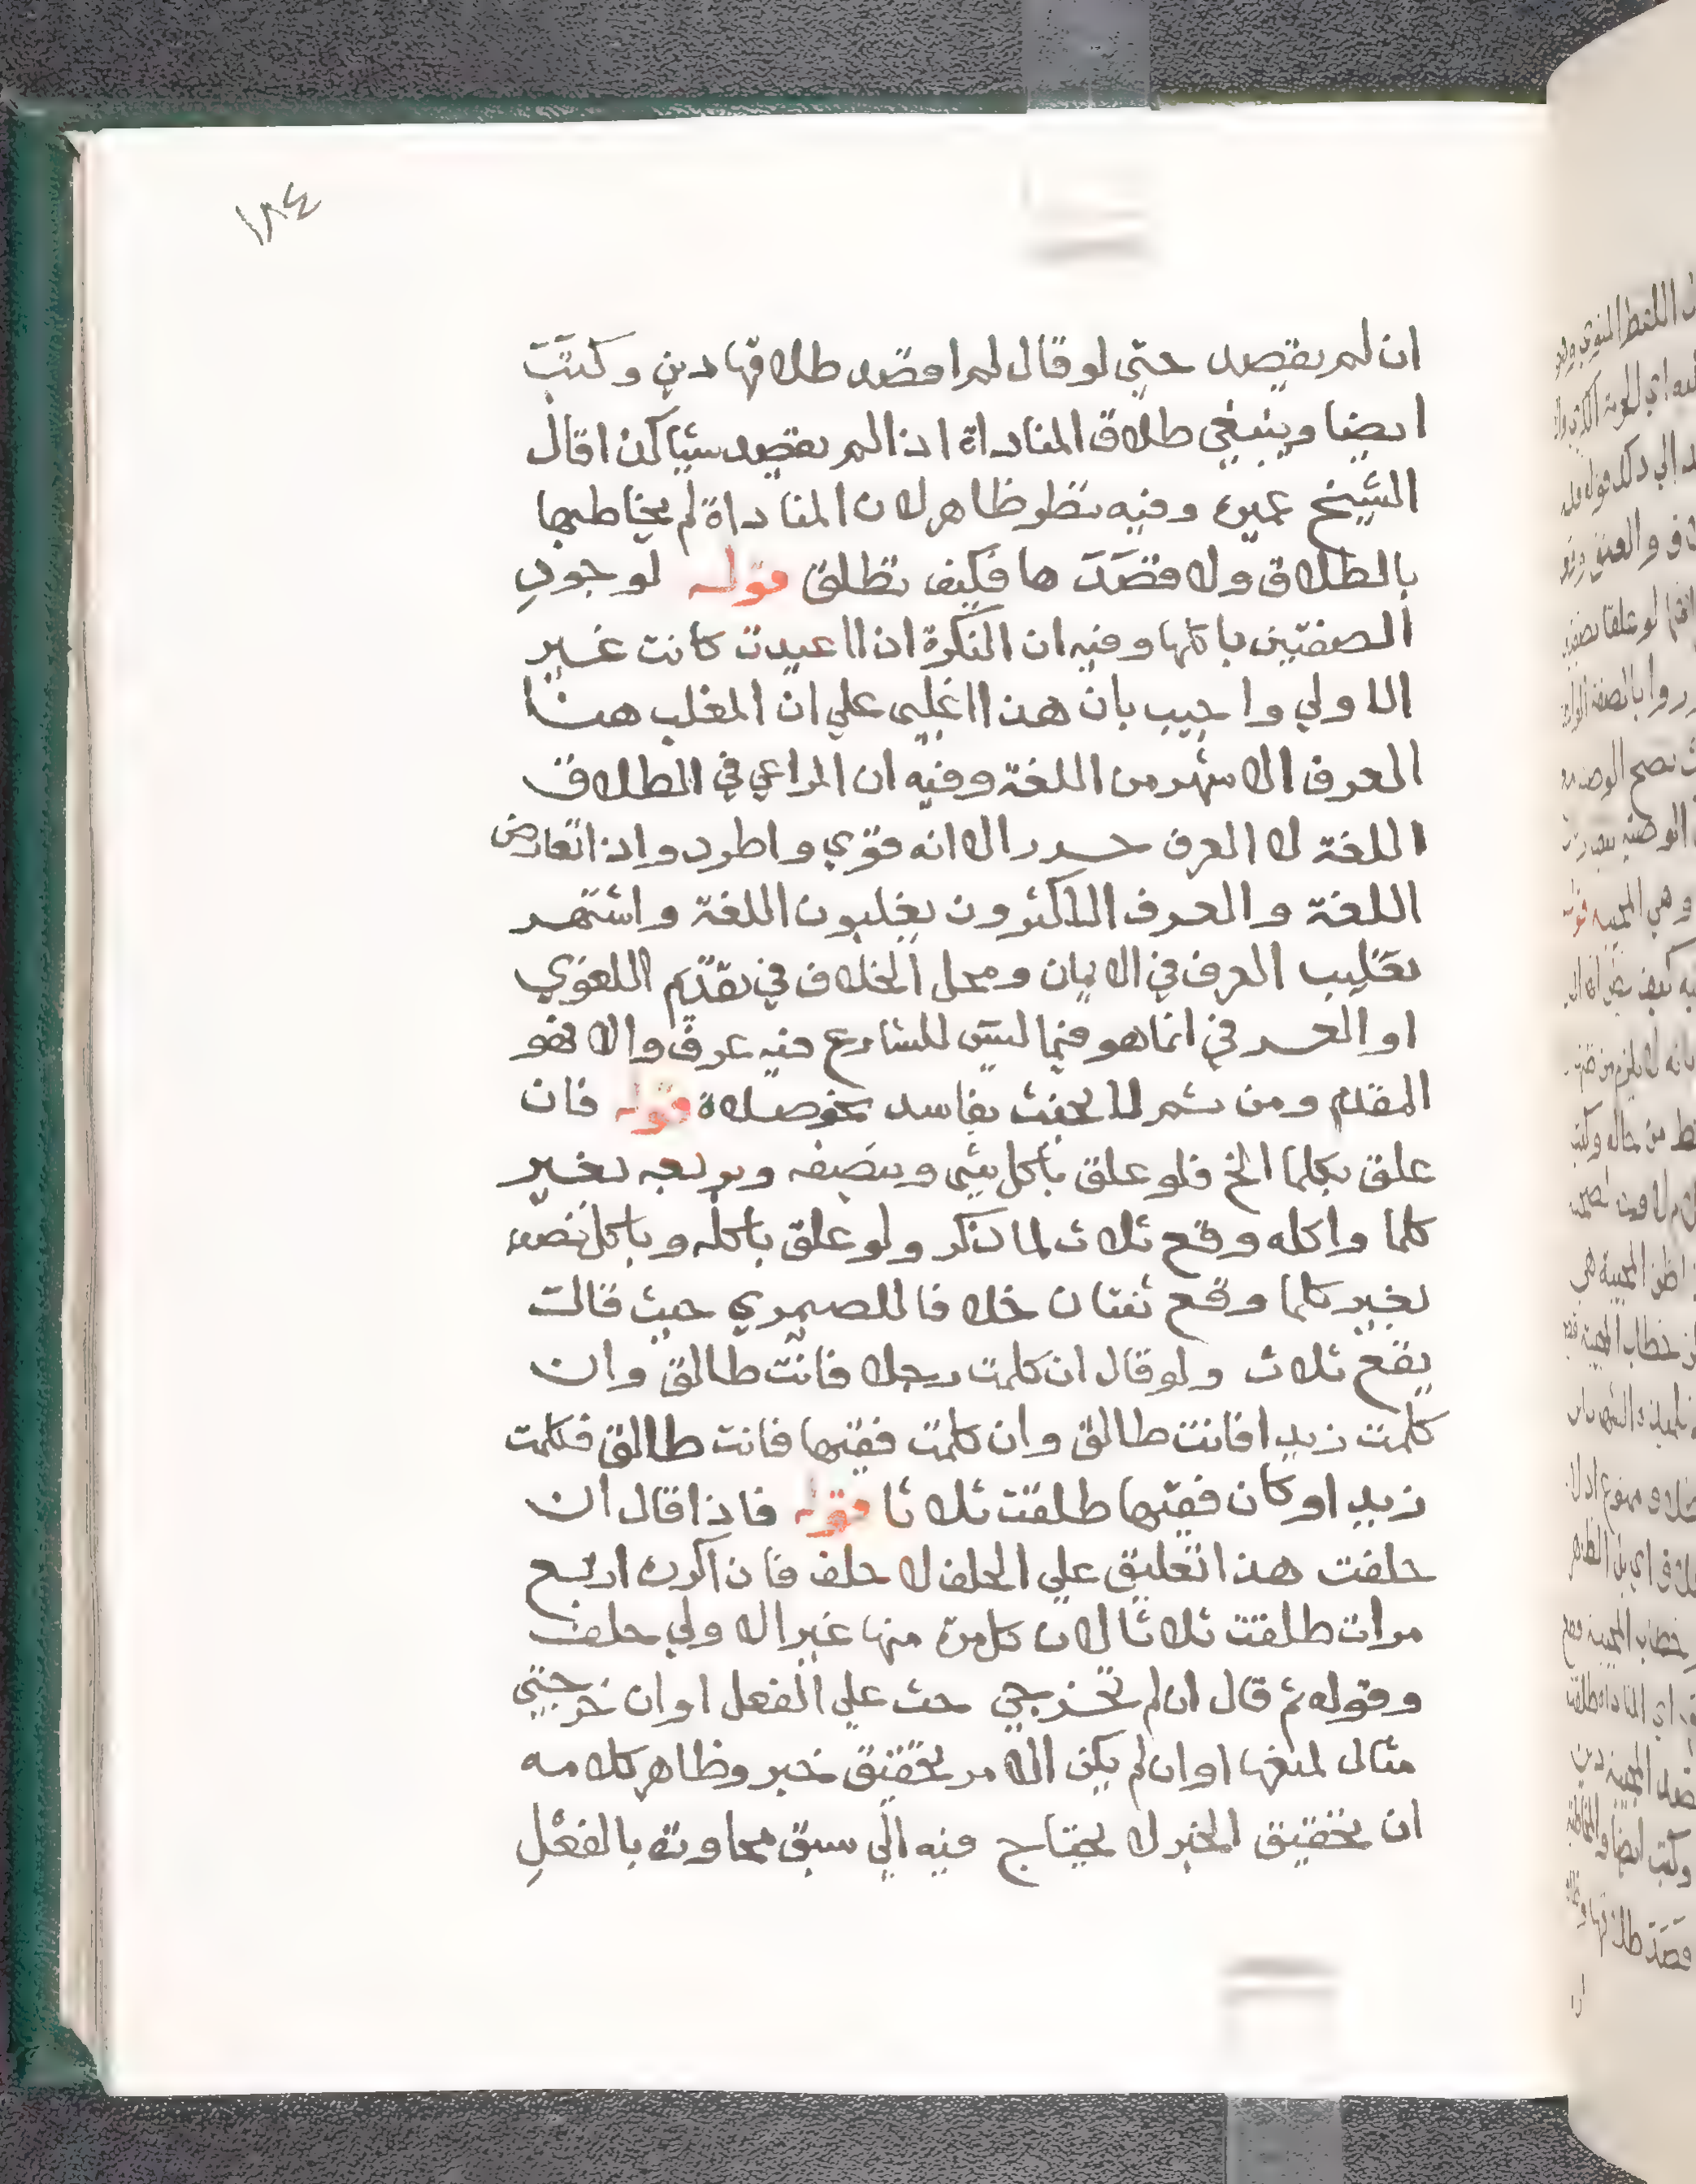 ١٨٤
ان لم يقصد حتي لو قال لم اقصد طلاقها دين وكتبَ
ايضا وينبغي طلاق المناداة اذا لم يقصد شيا كذا قال
الشيخ عميرة وفيه نظر ظاهر لان المناداة لم يخاطبها
بالطلاق ولا قصَدَ ها فكيف تطلق قوله لوجود
الصفتين باكلها وفيه ان النكرة اذا اعيدت كانت غير
الاولي واجيب بان هذا اغلبي علي ان المغلب هنا
العرف الاشهر من اللغة وفيه ان المراعي في الطلاق
اللغة لا العرف الا انه قوي واطرد واذا تعارض
اللغة والعرف الاكثرون يغلبون اللغة واشتهر
تغليب العرف في الايمان ومحل الخلاف في تقدّم اللغوي
او العرفي انما هو فيما ليس للشارع فيه عرف والا فهو
المقدم ومن ثم لا يحنث بفاسد نحو صلاة قوله فان
علق بكلما الخ فلو علق باكل شي وبنصفه وبربعه بغير
كلما واكله وقع ثلاث لما ذكر ولو علق باكله وباكل نصفه
بغير كلما وقع ثنتان خلافا للصيمري حيث قالت
يقع ثلاث ولو قال ان كلمت رجلا فانت طالق وان
كلمت زيدا فانت طالق وان كلمت فقيها فانت طالق فكلمت
زيدا وكان فقيها طلقت ثلاثا قوله فاذا قال ان
حلفت هذا تعليق علي الحلف لا حلف فان اكرره اربع
مرات طلقت ثلاثا لان كل مرة منها غير الاولي حلف
وقوله ثم قال ان لم تخرجي حث علي الفعل او ان خرجتي
مثال لمنعها او ان لم يكن الامر تحقيق خبر وظاهر كلامه
ان تحقيق الخبر لا يحتاج فيه الي سبق محاورته بالفعْلِ